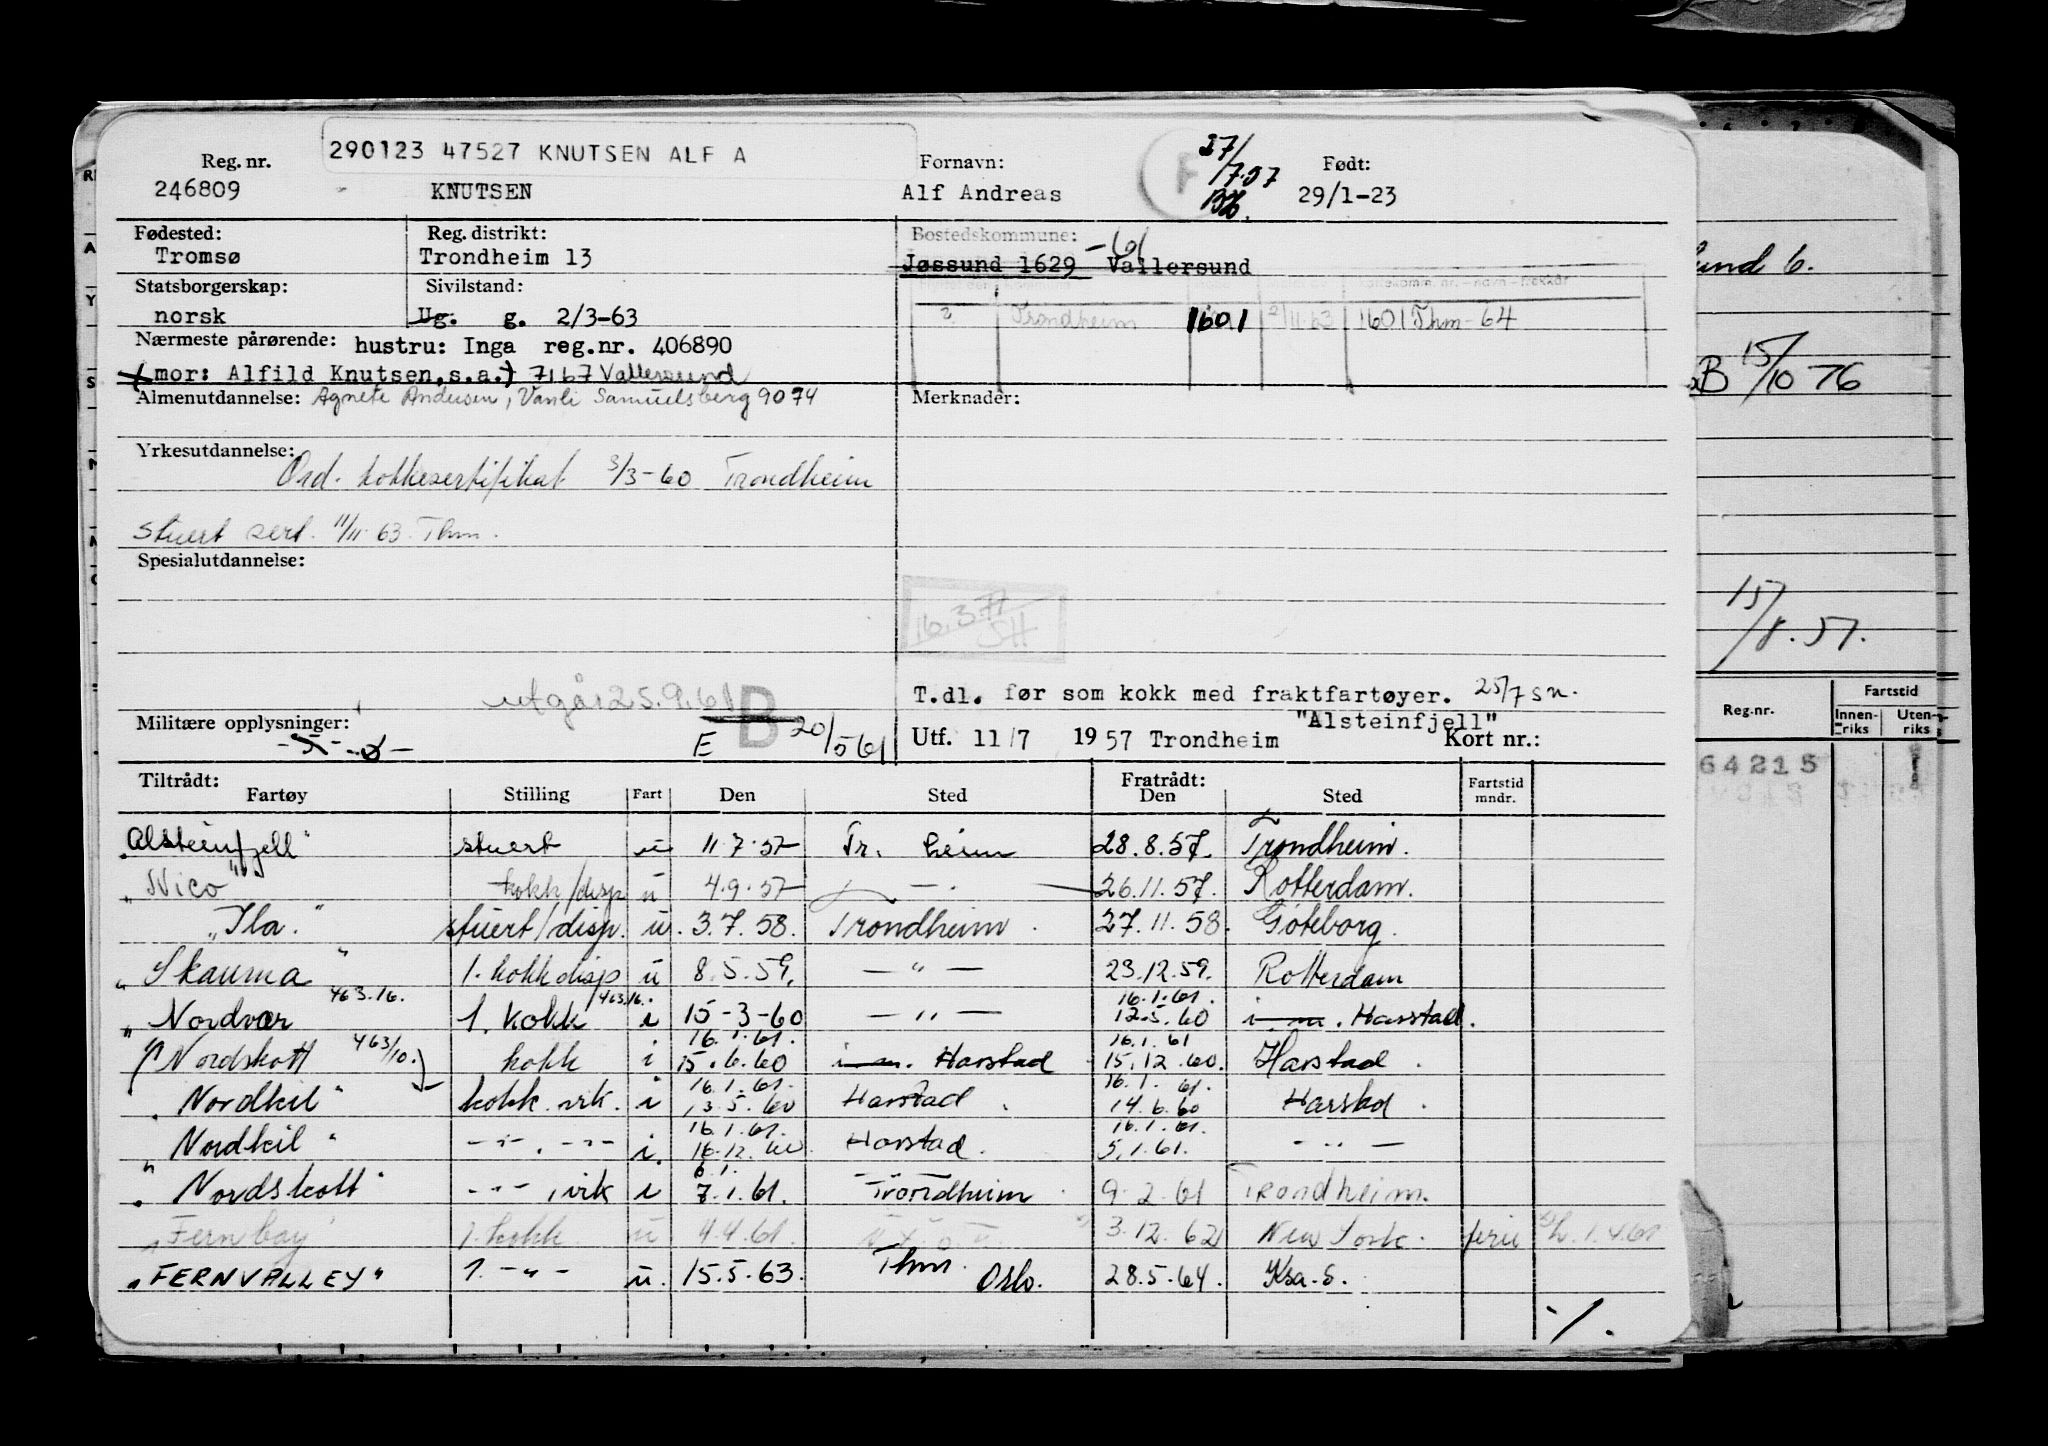 290123 47527 KNUTSEN ALF A
Reg. nr. Fornavn: Født:
246809 KNUTSEN Alf Andreas 27/7.57 29/1-23
Fødested: Reg. distrikt: Bostedskommune: -61
Tromsø Trondheim 13 Jøssund 1629 Vallersund
Statsborgerskap: Sivilstand:
norsk Ug. g. 2/3-63 2. Trondheim 1601 2/11-63 1601 Thm-64
Nærmeste pårørende: hustru: Inga reg.nr. 406890
(mor: Alfild Knutsen, s.a.) 7167 Vallersund
Almenutdannelse: Agnete Andersen, Vanli Samuelsberg 9074 Merknader:
Yrkesutdannelse:
Ord. kokkesertifikat 3/3-60 Trondheim
stuert sert. 11/11-63 Thm.
Spesialutdannelse:
16.3.77
SH
utgår 25.9.61 B T.dl. før som kokk med fraktfartøyer. 25/7 sn.
"Alsteinfjell"
Militære opplysninger: E 20/5 61 Utf. 11/7 1957 Trondheim Kort nr.:
Tiltrådt: Fratrådt:
Fartøy Stilling Fart Den Sted Den Sted Fartstid mndr.
Alsteinfjell" stuert u 11.7.57 Tr. heim 28.8.57. Trondheim.
"Nico" kokk/disp u 4.9.57 — 26.11.57. Rotterdam.
"Ila." stuert/disp. u. 3.7.58. Trondheim 27.11.58. Göteborg.
"Skauma" 1. kokk disp u 8.5.59. — " — 23.12.59. Rotterdam
463.16. 463.16. 16.1.61.
"Nordvar 1. kokk i 15-3-60 — " — 12.5.60 i.m. Harstad.
463/10. 16.1.61. 16.1.61
"Nordskott kokk i 15.6.60 i.m. Harstad 15.12.60. Harstad
16.1.61. 16.1.61.
"Nordkil" kokk. irk. i 13.5.60 Harstad 14.6.60 Harstad.
16.1.61. 16.1.61.
"Nordkil" -"- . -"- i. 16.12.60 Harstad. 5.1.61. - " -
6.1.
"Nordskott" -"- , irk i 7.1.61. Trondheim 9.2.61 Trondheim.
"Fernbay" 1. kokk u 4.4.61. 3.12.62 New York. ferie 1.4.61
"FERNVALLEY" 1. -"- u. 15.5.63. Thm. Oslo. 28.5.64. Ksa.S.
./.
sund 6.
B 15/10 76
15/8.57.
Reg.nr. Fartstid
Innen-riks Uten-riks
64215